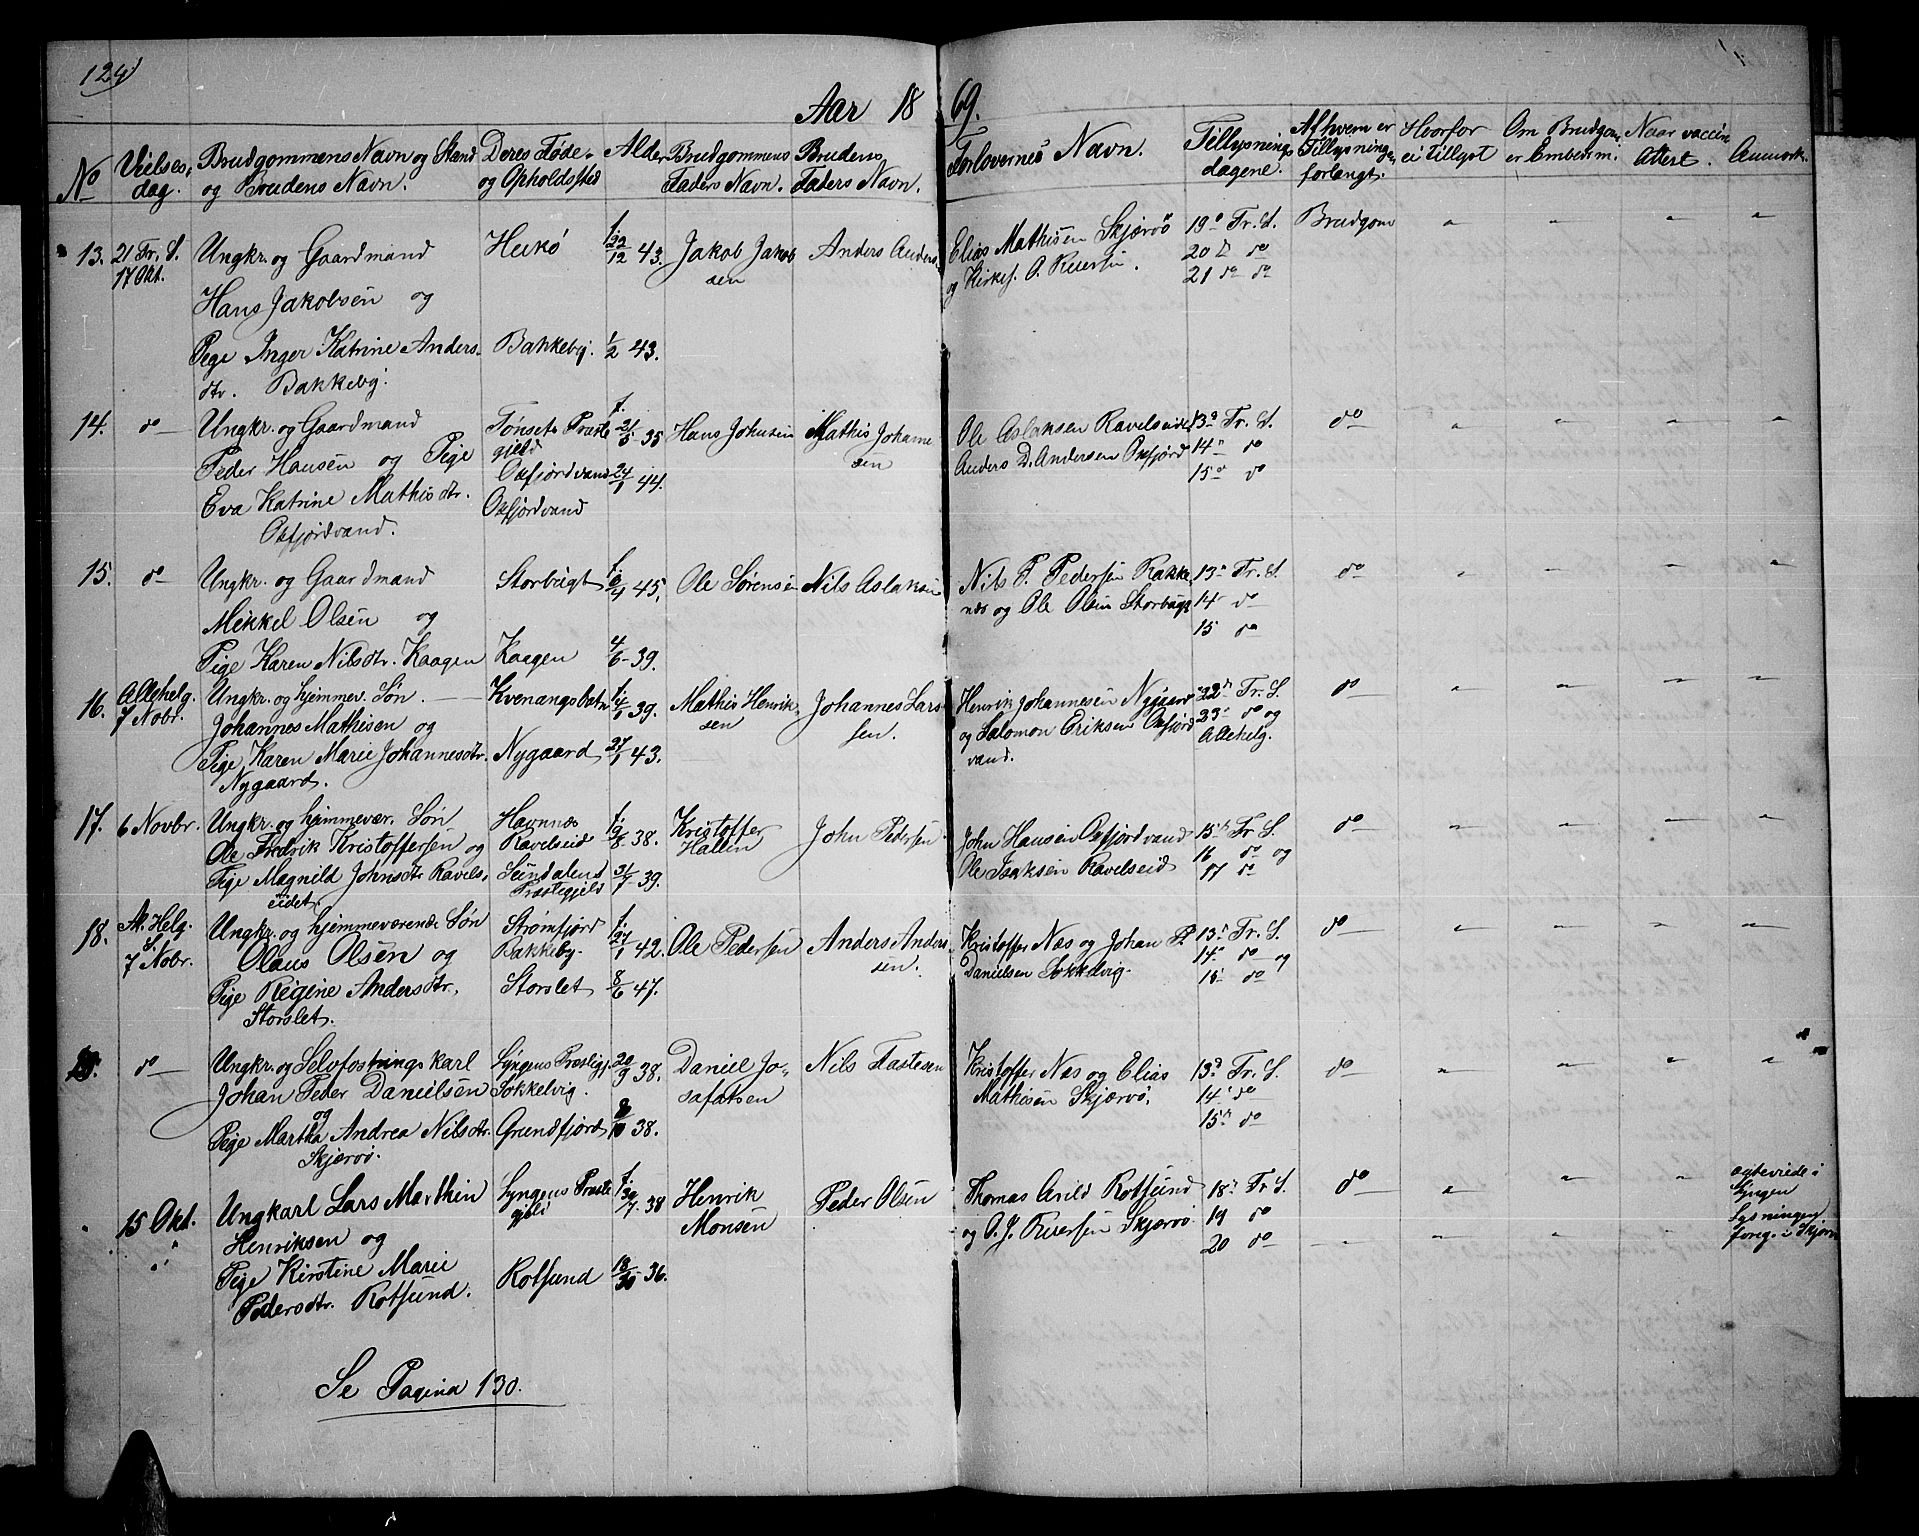 124
Aar 1869.
No
Vielses-
dag.
Brudgommens Navn og Stand
og Brudens Navn.
Deres Føde-
og Opholdssted
Alder
Brudgommens
Faders Navn.
Brudens
Faders Navn.
Forlovernes Navn.
Tillysnings
dagene.
Af hvem er
Tillysningen
forlangt.
Hvorfor
ei tillyst
Om Brudgom.
er Embedsm.
Naar vaccin
Attest.
Anmærk.
13. 21 Tr. S.
17 Okt.
Ungkr. og Gaardmand
Hans Jakobsen og
Pige Inger Katrine Anders-
dtr. Bakkeby.
Hukø
Bakkeby.
f. 22/12 43.
1/2 43.
Jakob Jakob
sen
Anders Anders-
Elias Mathisen Skjærvö
og Kirkes. O. Riersen.
19d Tr. S.
20 do do
21 do do
Brudgom
14. do
Ungkr. og Gaardmand
Peder Hansen og Pige
Eva Katrine Mathisdtr.
Oxfjordvand.
Tønset Præste
gjeld
Oxfjordvand
Oxfjordvand
f. 21/5 35
24/1 44.
Hans Johnsen
Mathis Johanne
sen
Ole Aslaksen Ravelseid
Anders D. Andersen Oxfjord
13d Tr. S.
14 do
15d do
do
15. do
Ungkr. og Gaardmand
Mikkel Olsen og
Pige Karen Nilsdtr. Kaagen
Storbugt
Kaagen
f. 45,
4/6 - 39.
Ole Sørensen
Nils Aslaksen
Nils P. Pedersen Rakke
næs og Ole Olsen Storbugt
13d Tr. S.
14 do
15 do
do
16. Allehelg.
7 Nobr.
Ungkr. og hjemmev. Søn
Johannes Mathisen og
Pige, Karen Marie Johannesdtr.
Nygaard.
Kvenangsbotn
Nygaard
f. 4/1 39.
27/1 43.
Mathis Henrik-
sen
Johannes Lars-
sen.
Henrik Johannesen Nygaard
og Salomon Eriksen Oxfjord
vand.
22d Tr. S.
23d do og
Allehelg.
do
17. 6 Novbr.
Ungkr. og hjemmevær. Søn
Ole Fredrik Kristoffersen og
Pige Magnild Johnsdtr Ravels-
eidet.
Havnnæs
Ravelseid
Sundalens
Præstegjeld
f. 9/8 - 38.
31/7 - 39.
Kristoffer
Hallen
John Pedersen
John Hansen Oxfjordvand
Ole Isaksen Ravelseid
15d Tr. S.
16 do og
17 do
do
18. Al. Helg.
S.
7 Nobr.
Ungkr. og hjemmeværende Søn
Olaus Olsen og
Pige Regine Andersdtr.
Storslet.
Strømfjord
Bakkeby.
Storslet
f. 27/1 42.
8/6 47.
Ole Pedersen
Anders Anders-
sen.
Kristoffer Næs og Johan P.
Danielsen Sokkelvig.
13d Tr. S.
14d do og
15 do
do
do
Ungkr. og Selvfostringskarl
Johan Peder Danielsen
og
Pige Martha Andrea Nilsdtr.
Skjærvö.
Lyngens Præstegj.
Sokkelvig.
Grundfjord
20/9 38.
/10 38.
Daniel Jo-
safatsen
Nils Fastesen
Kristoffer Næs og Elias
Mathisen Skjærvö.
13d Tr. S.
14 do
15d do
do
15 Okt.
Ungkarl Lars Marthin
Henriksen og
Pige Kirstine Marie
Pedersdtr. Rotsund.
Lyngens Præste
gjeld
Rotsund
f. 30/7 - 38
18/30 - 36.
Henrik
Monsen
Peder Olsen
Thomas Arild Rotsund
og O. J. Riersen Skjærvö.
18d Tr. S.
19 do
20 do
do
ægteviede i
Lyngen
Lysningen
foreg. i Skjærv
Se Pagina 130.